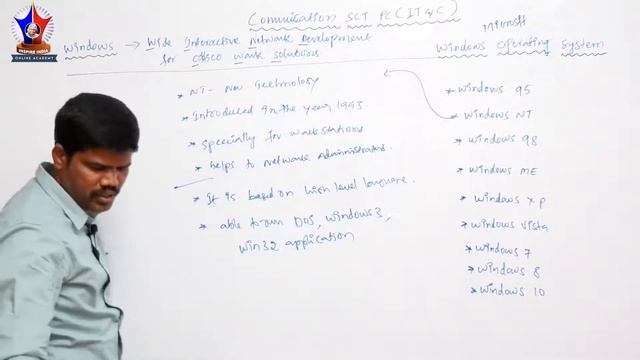 INSPIRE INDIA
ONLINE ACADEMY
Comunication SCT PC (IT & C)
Windows → Wide Interactive Network Development
for Cabsco Wask Solutions
Microsoft
Windows Operating System
* NT - New Technology
* Introduced in the year 1993.
* specially for workstations
* helps to Network Administrators.
* It is based on high level language.
* able to run DOS, windows 3,
win 32 application
* windows 95
* windows NT
* windows 98
* windows ME
* windows XP
* windows vista
* windows 7
* windows 8
* windows 10